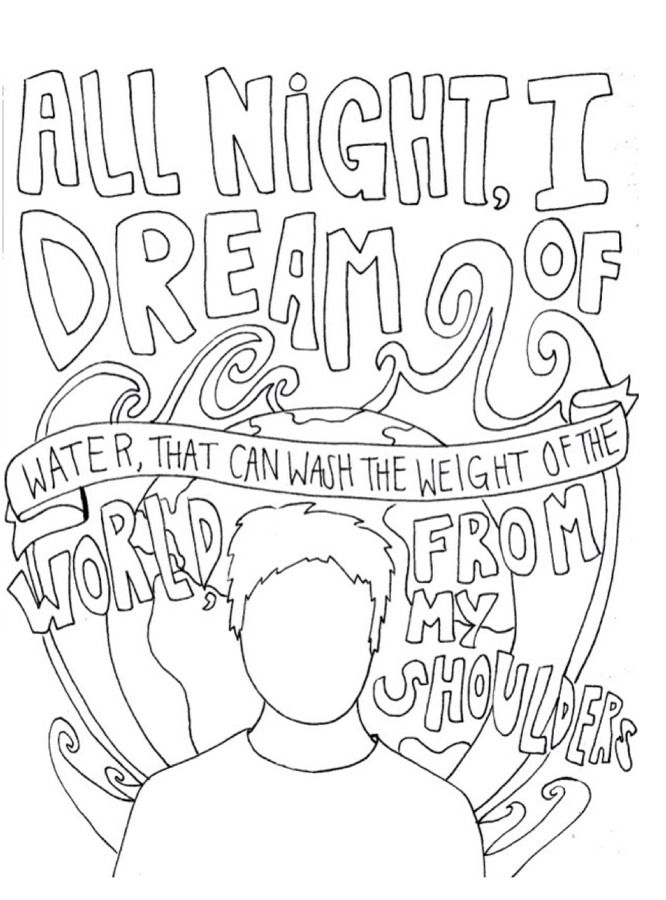 ALL NiGHT, I
DREAM OF
WATER, THAT CAN WASH THE WEIGHT OF THE
WORLD, FROM
MY
SHOULDERS